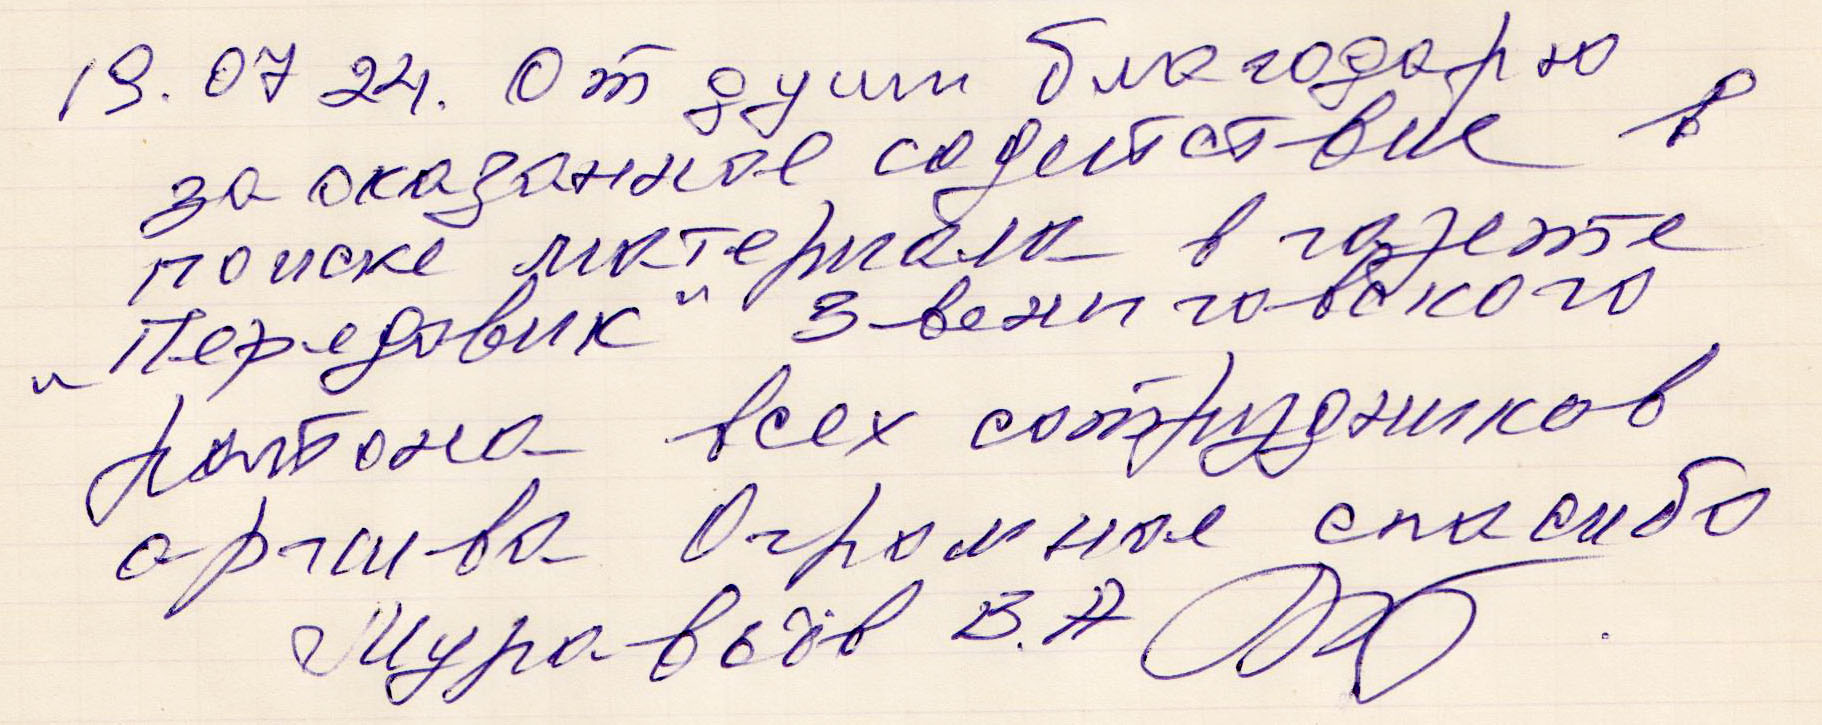 19.07 24. От души благодарю
за оказанное содействие в
поиске материала в газете
"Передовик" Звениговского
района всех сотрудников
архива Огромное спасибо
Муравьёв В.А